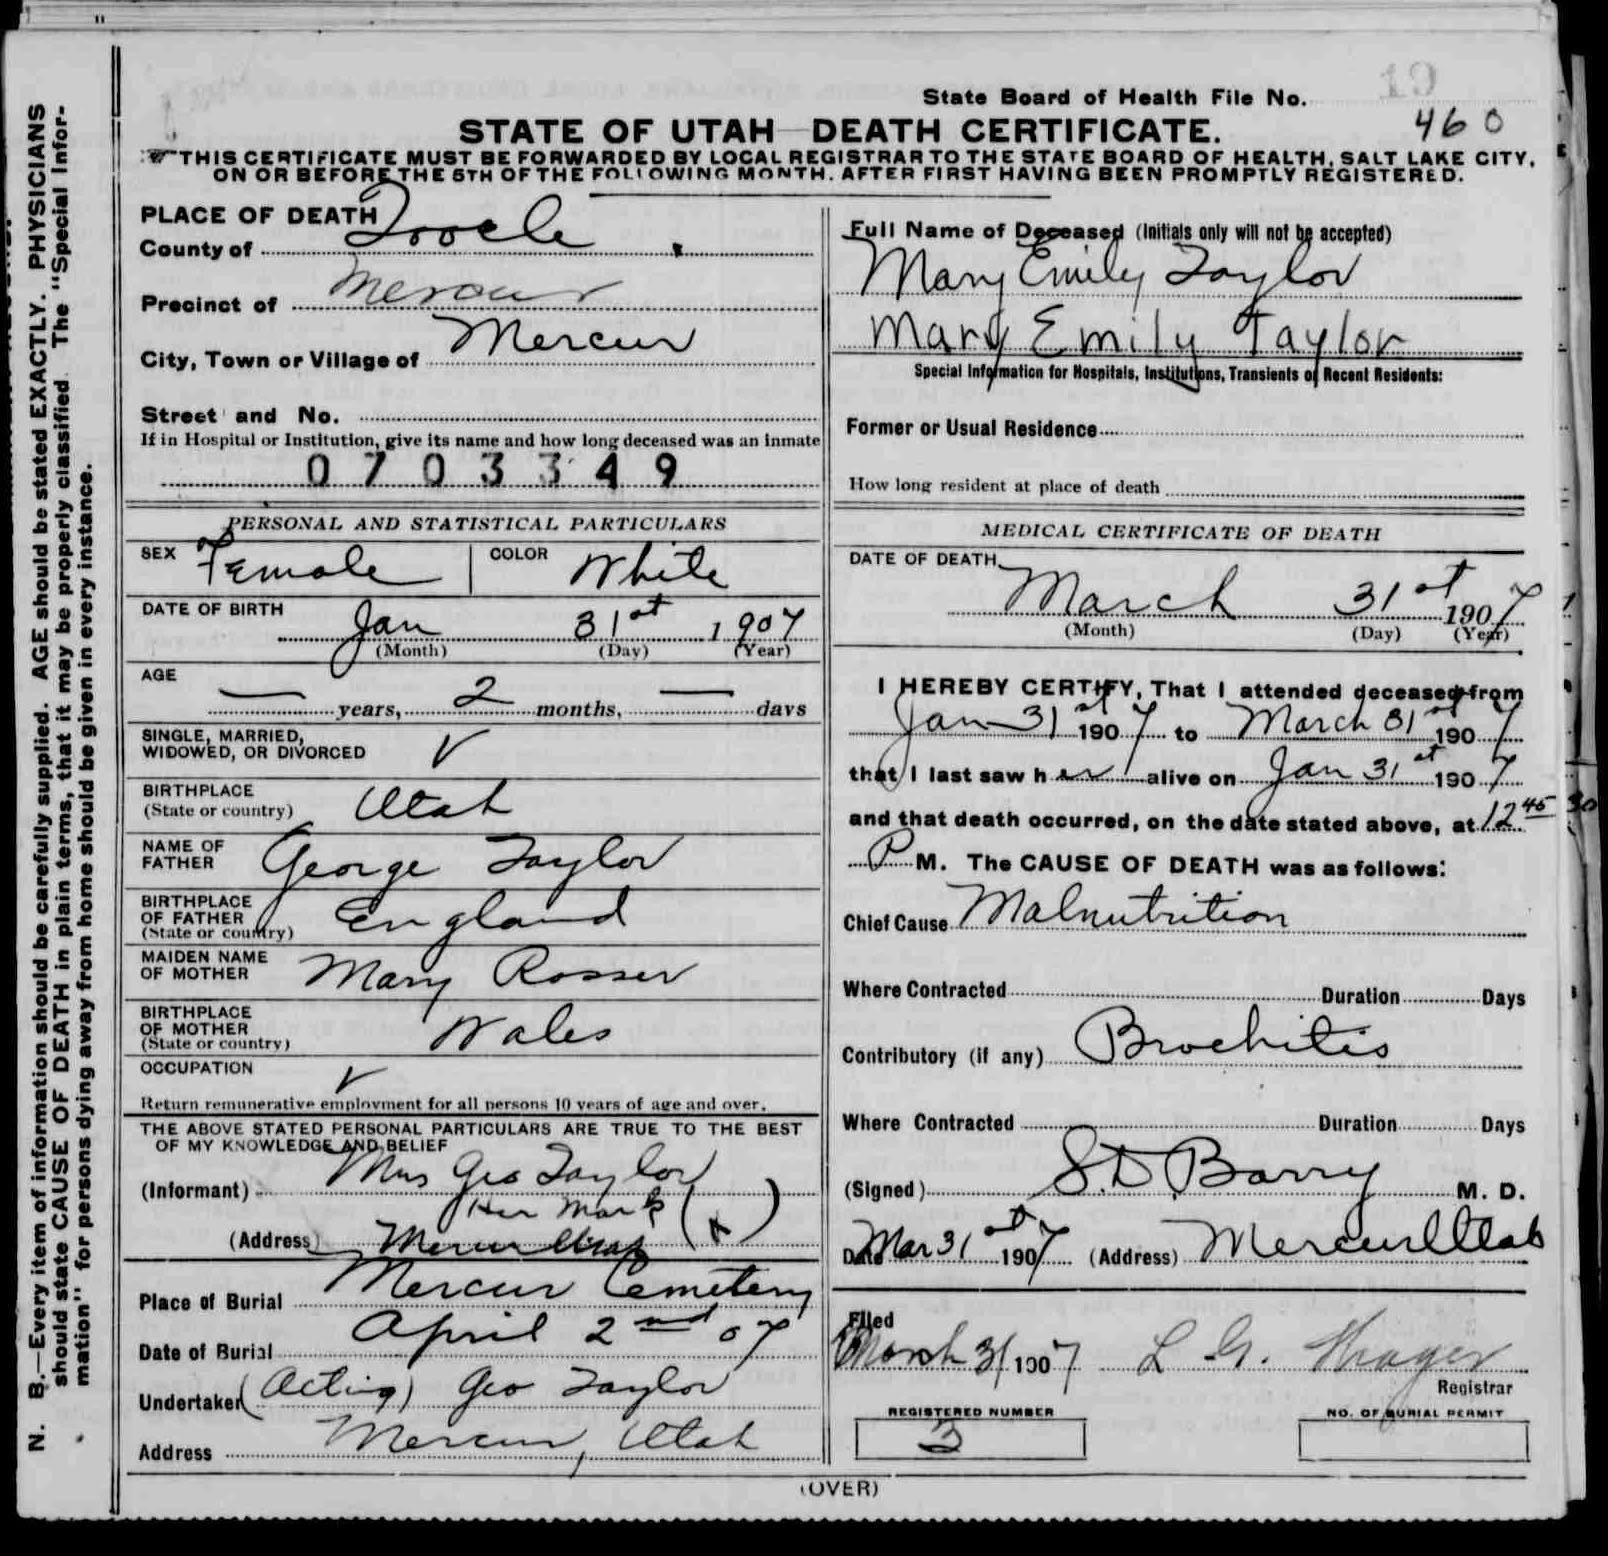 N. B.—Every item of information should be carefully supplied. AGE should be stated EXACTLY. PHYSICIANS
should state CAUSE OF DEATH in plain terms, that it may be properly classified. The "Special Infor-
mation" for persons dying away from home should be given in every instance.
19
State Board of Health File No.
460
STATE OF UTAH—DEATH CERTIFICATE.
THIS CERTIFICATE MUST BE FORWARDED BY LOCAL REGISTRAR TO THE STATE BOARD OF HEALTH, SALT LAKE CITY,
ON OR BEFORE THE 5TH OF THE FOLLOWING MONTH. AFTER FIRST HAVING BEEN PROMPTLY REGISTERED.
PLACE OF DEATH
County of Tooele
Precinct of Mercur
City, Town or Village of Mercur
Street and No.
If in Hospital or Institution, give its name and how long deceased was an inmate
0703349
PERSONAL AND STATISTICAL PARTICULARS
SEX Female COLOR White
DATE OF BIRTH
Jan 31st 1907
(Month) (Day) (Year)
AGE
— years, 2 months, — days
SINGLE, MARRIED,
WIDOWED, OR DIVORCED √
BIRTHPLACE
(State or country) Utah
NAME OF
FATHER George Taylor
BIRTHPLACE
OF FATHER
(State or country) England
MAIDEN NAME
OF MOTHER Mary Rosser
BIRTHPLACE
OF MOTHER
(State or country) Wales
OCCUPATION √
Return remunerative employment for all persons 10 years of age and over.
THE ABOVE STATED PERSONAL PARTICULARS ARE TRUE TO THE BEST
OF MY KNOWLEDGE AND BELIEF
(Informant) Mrs Geo Taylor
Her Mark (X)
(Address) Mercur Utah
Place of Burial Mercur Cemetery
Date of Burial April 2nd 07
Undertaker (Acting) Geo Taylor
Address Mercur, Utah
Full Name of Deceased (Initials only will not be accepted)
Mary Emily Taylor
Mary Emily Taylor
Special Information for Hospitals, Institutions, Transients or Recent Residents:
Former or Usual Residence
How long resident at place of death
MEDICAL CERTIFICATE OF DEATH
DATE OF DEATH
March 31st 1907
(Month) (Day) (Year)
I HEREBY CERTIFY, That I attended deceased from
Jan 31st 1907 to March 31st 1907
that I last saw her alive on Jan 31st 1907
and that death occurred, on the date stated above, at 12.45
P M. The CAUSE OF DEATH was as follows:
Chief Cause Malnutrition
Where Contracted Duration Days
Contributory (if any) Brochitis
Where Contracted Duration Days
(Signed) S.D. Barry M. D.
Date Mar 31st 1907 (Address) Mercur Utah
Filed
March 31 1907 L. G.
Registrar
REGISTERED NUMBER
3
NO. OF BURIAL PERMIT
(OVER)